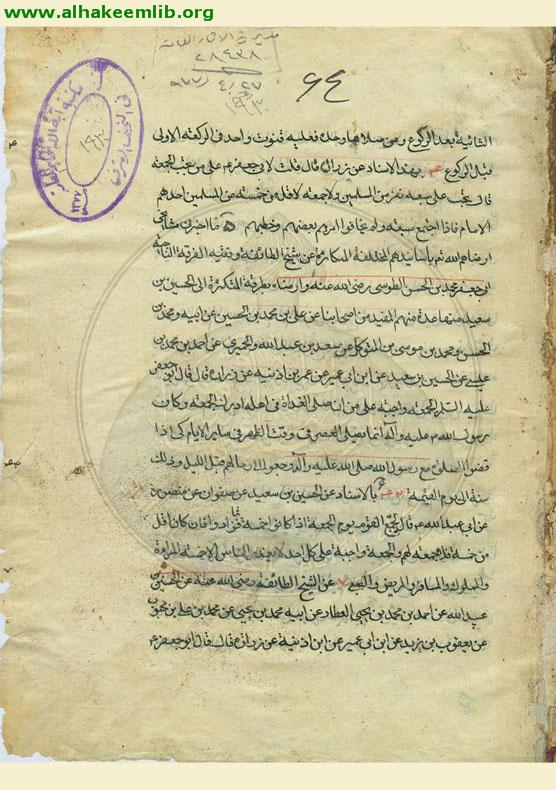 www.alhakeemlib.org
٢٨٤٣٨
٦٤
الثانية بعد الركوع ومن صلاها وحده فعليه قنوت واحد في الركعة الاولى
قبل الركوع وبهذا الاسناد عن زرارة قال قلت لابي جعفر ع على من تجب الجمعة
قال تجب على سبعة نفر من المسلمين ولا جمعة لاقل من خمسة من المسلمين احدهم
الامام فاذا اجتمع سبعة ولم يخافوا امهم بعضهم وخطبهم ما اخبرني مشايخي
ارضاهم الله تم باسانيدهم المختلفة المتكاثرة عن شيخ الطائفة وفقيه الفرقة الناجية
ابي جعفر محمد بن الحسن الطوسي رضي الله عنه وارضاه بطرقه المتكثرة الى الحسين بن
سعيد منها عدة منهم المفيد من اصحابنا عن علي بن محمد بن الحسين عن ابيه ومحمد بن
الحسن ومحمد بن موسى بن المتوكل عن سعد بن عبد الله والحميري عن احمد بن محمد بن
عيسى عن الحسين بن سعيد عن ابن ابي عمير عن عمر بن اذينة عن زرارة قال قال ابو جعفر
عليه السلم الجمعة واجبة على من ان صلى الغداة في اهله ادرك الجمعة وكان
رسول الله صلى الله عليه وآله انما يصلي العصر في وقت الظهر في ساير الايام كي اذا
قضوا الصلوة مع رسول الله صلى الله عليه وآله رجعوا الى رحالهم قبل الليل وذلك
سنة الى يوم القيمة بالاسناد عن الحسين بن سعيد عن صفوان عن منصور
عن ابي عبد الله ع قال يجمع القوم يوم الجمعة اذا كانوا خمسة فما زاد وان كان اقل
من خمسة فلا جمعة لهم والجمعة واجبة على كل احد لا يعذر الناس الا خمسة المراءة
والمملوك والمسافر والمريض والصبي ٧ عن الشيخ الطائفة رضي الله عنه عن الحسين بن
عبيد الله عن احمد بن محمد بن يحيى العطار عن ابيه محمد بن يحيى عن محمد بن علي بن محبوب
عن يعقوب بن يزيد عن ابن ابي عمير عن ابن اذينة عن زرارة قال قال ابو جعفر ع